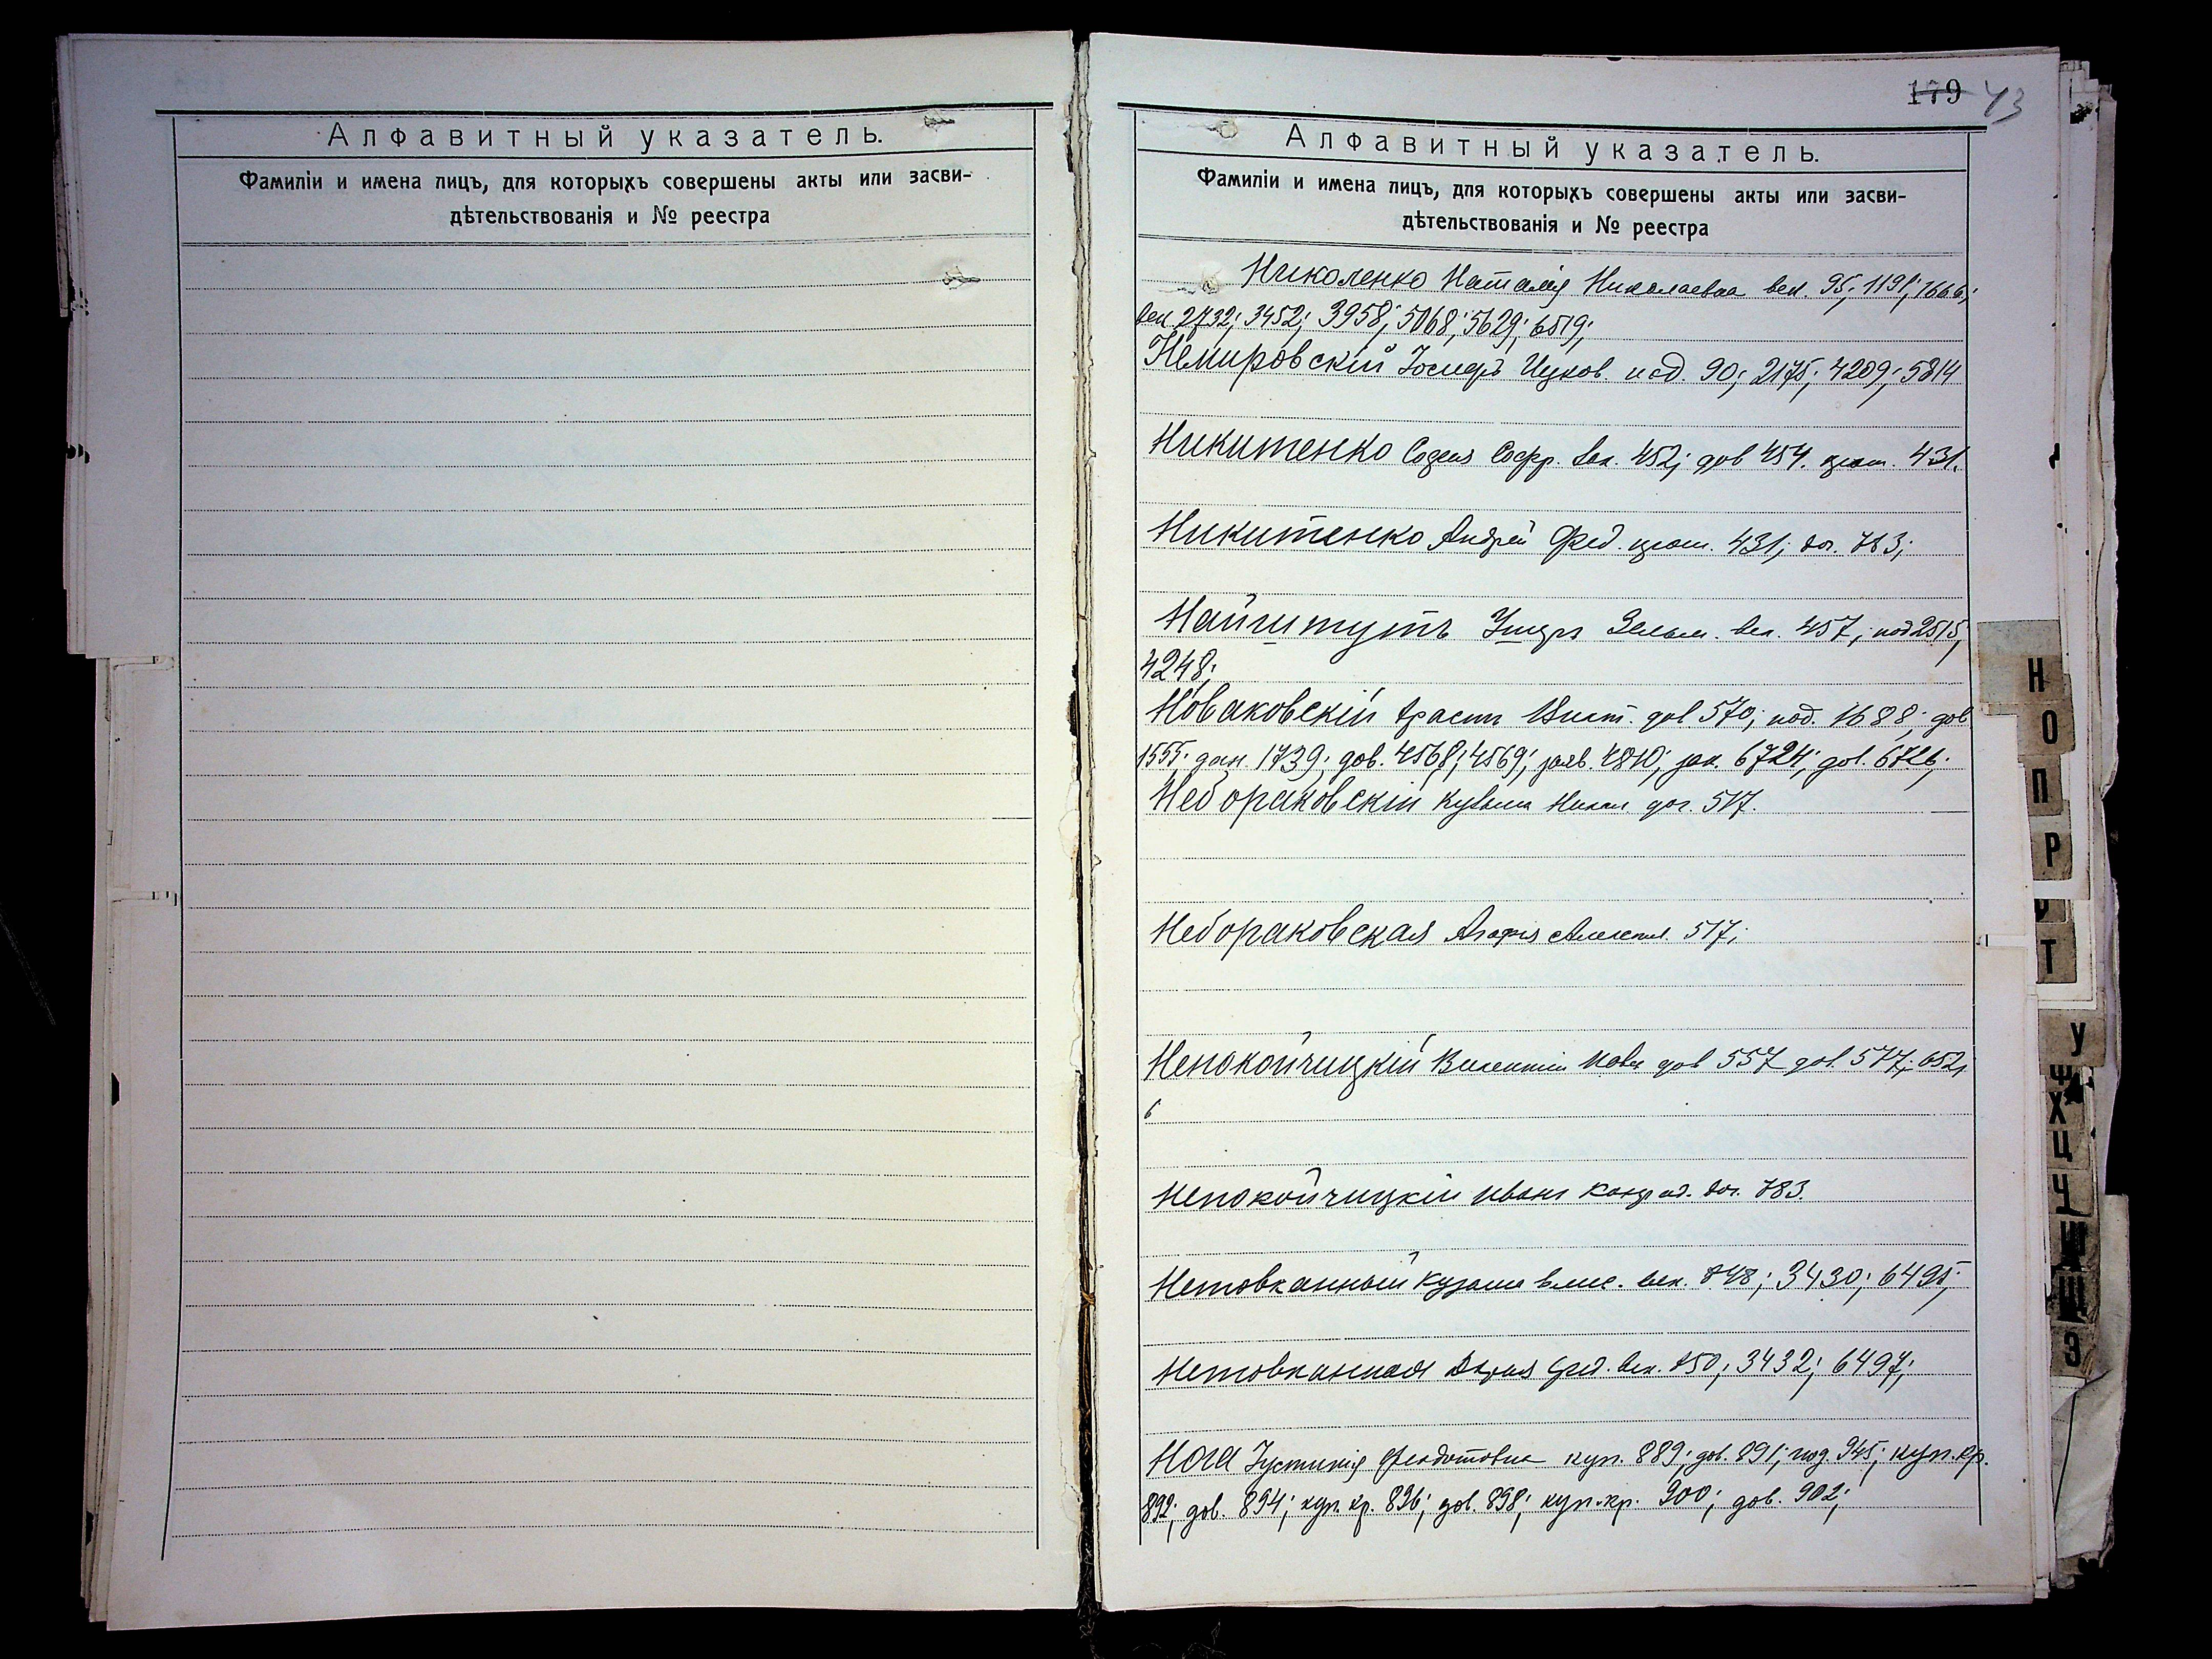 Алфавитный указатель.
Фамиліи и имена лицъ, для которыхъ совершены акты или засви-
дѣтельствованія и № реестра
179 43
Алфавитный указатель.
Фамиліи и имена лицъ, для которыхъ совершены акты или засви-
дѣтельствованія и № реестра
Николенко Наталія Николаевна век. 95; 1191; 1666;
век 2732; 3452; 3958; 5068; 5629; 6519;
Немировскій Іосифъ Ицков. исд. 90; 2175; 4209; 5814
Никитенко Софія Софр. век. 452; дов 454. 431.
Никитенко Андрей Фед. 431; дог. 783;
Найштутъ век. 457; под 2515,
4248;
Новаковскій дов 570; под. 1688; дов
1555. 1739; дов. 4568; 4569; заяв. 4810; 6724; дов. 6726;
Небораковскій Кузьма Никол. дог. 517.
Небораковская Агафія 517;
Непокойчицкій Викентій дов 557 дов. 577; 652;
6
Непокойчицкій Иванъ дог. 783.
Нетовканный Кузьма век. 848; 3430; 6495;
Нетовканная Дарія Фед. век. 850; 3432; 6497;
Нога Іустинія Федотовна куп. 889; дов. 891; под. 945; куп. кр.
892; дов. 894; куп. кр. 896; дов. 898; куп. кр. 900; дов. 902;
Н
О
П
Р
Т
У
Х
Ц
Ч
Ш
Щ
Э